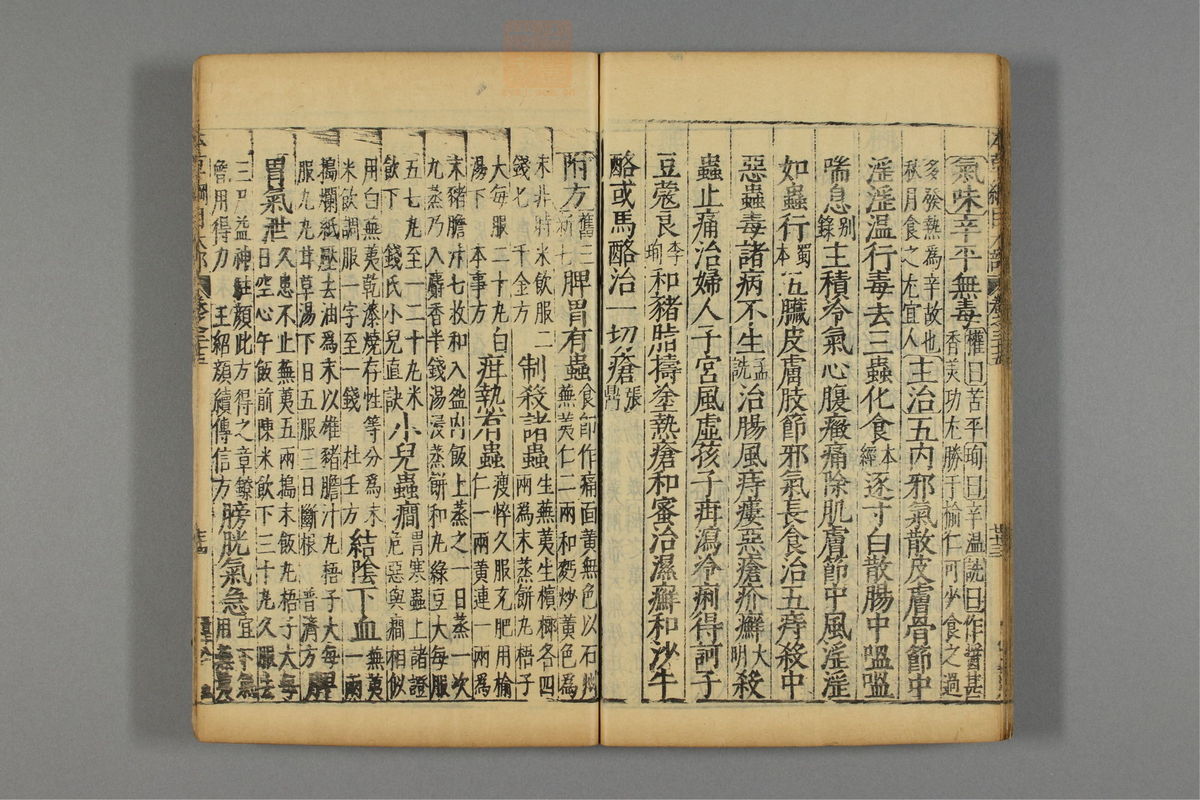 本草綱目木部 卷之三十五
氣味辛平無毒權曰苦平珣曰辛温詵曰作醬甚香美功尤勝于榆仁可少食之過
多發熱爲辛故也秋月食之尤宜人主治五内邪氣散皮膚骨節中
淫淫温行毒去三蟲化食本經逐寸白散腸中嗢嗢
喘息别錄主積冷氣心腹癥痛除肌膚節中風淫淫
如蟲行蜀本五臟皮膚肢節邪氣長食治五痔殺中
惡蟲毒諸病不生孟詵治腸風痔瘻惡瘡疥癬大明殺
蟲止痛治婦人子宮風虛孩子疳瀉冷痢得訶子
豆蔻良李珣和豬脂擣塗熱瘡和蜜治濕癬和沙牛
酪或馬酪治一切瘡張鼎
附方舊三新七脾胃有蟲食即作痛面黄無色以石州蕪荑仁二兩和麪炒黄色爲
末非時米飲服二錢七 千金方制殺諸蟲生蕪荑生檳榔各四兩爲末蒸餅丸梧子
大每服二十丸白湯下 本事方疳熱有蟲瘦悴久服充肥用榆仁一兩黄連一兩爲
末豬膽汁七枚和入盌内飯上蒸之一日蒸一次九蒸乃入麝香半錢湯浸蒸餅和丸綠豆大每服
五七丸至一二十丸米飲下 錢氏小兒直訣小兒蟲癇胃寒蟲上諸證危惡與癇相似
用白蕪荑乾漆燒存性等分爲末米飲調服一字至一錢 杜壬方結陰下血蕪荑一兩
搗爛紙壓去油爲末以雄豬膽汁丸梧子大每服九丸甘草湯下日五服三日斷根 普濟方脾
胃氣泄久患不止蕪荑五兩搗末飯丸梧子大每日空心午飯前陳米飲下三十丸久服去
三尸益神駐顏此方得之章鐐曾用得力 王紹顏續傳信方膀胱氣急宜下氣用蕪荑
本草綱目木部 卷之三十五